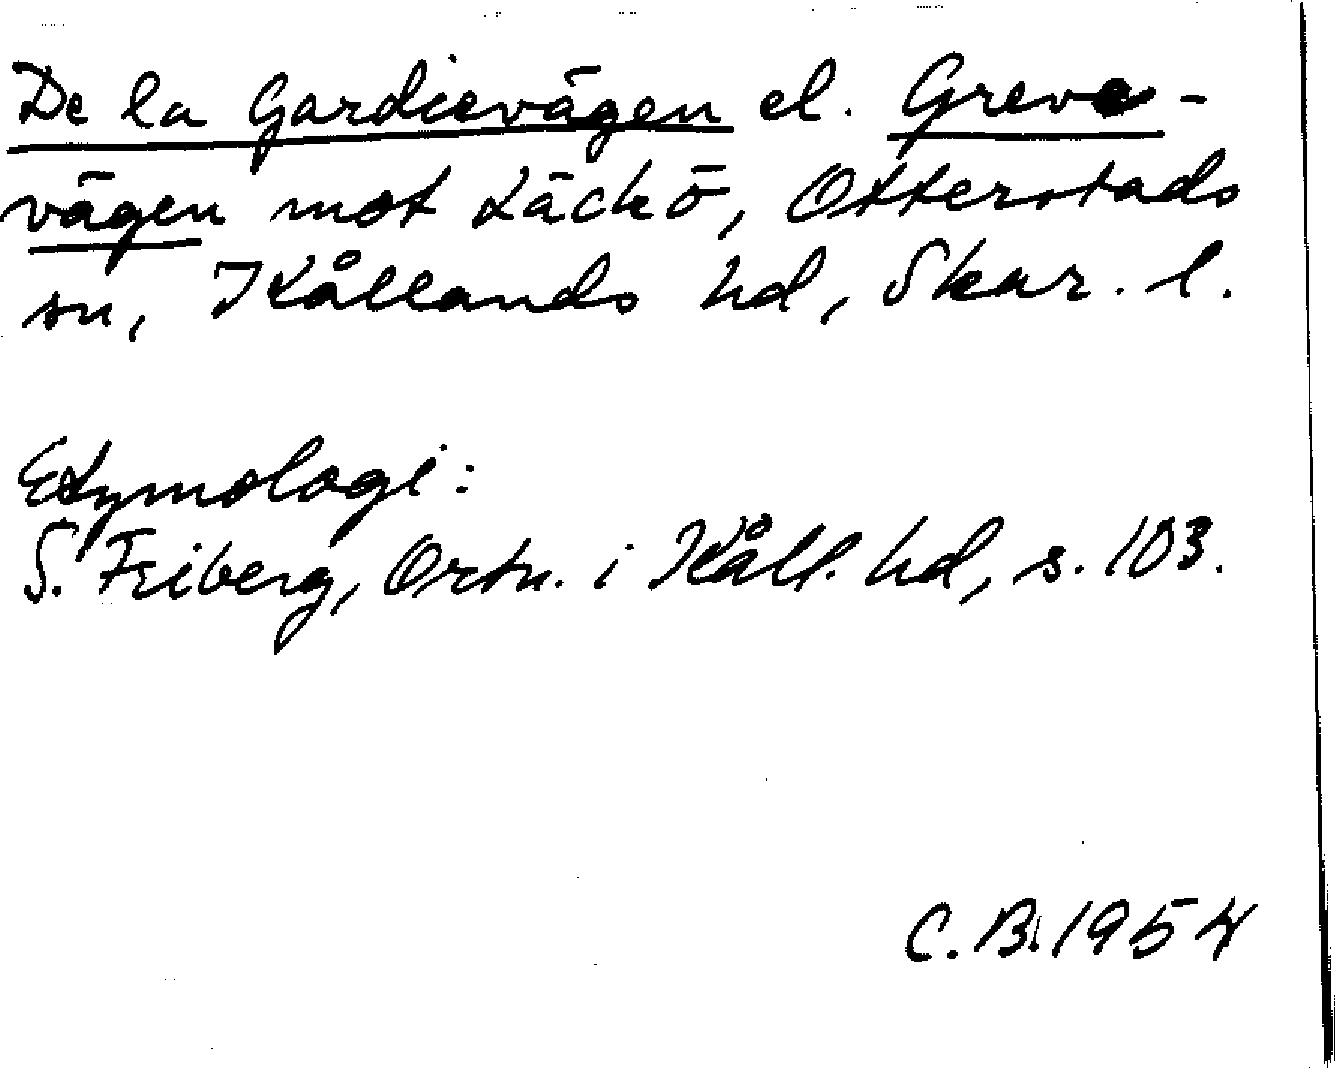 De la Gardievägen el. Greve-
vägen mot Läckö, Otterstads
sn, Kållands hd, Skar. l.
Etymologi:
S. Friberg, Ortn. i Kåll. hd, s. 103.
C. B. 1954